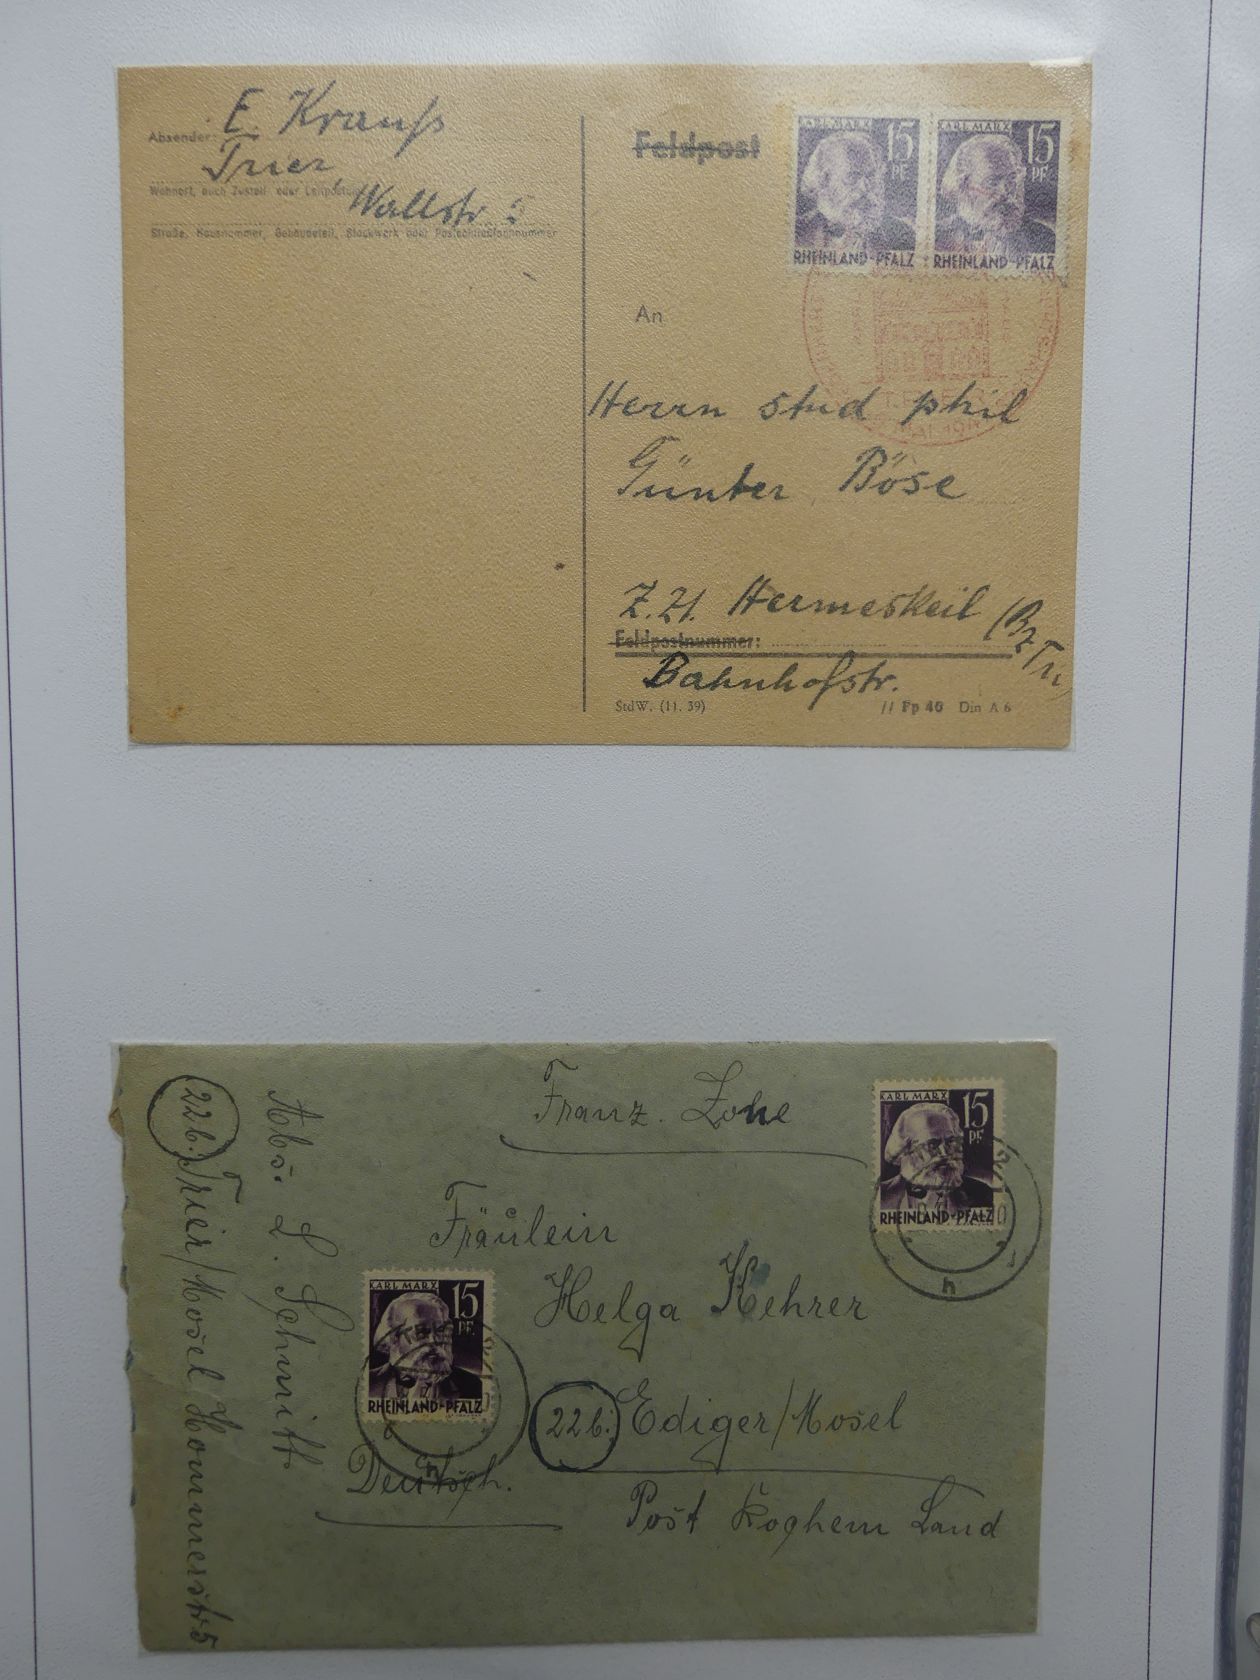 Absender: E. Krauß
Trier
Wohnort, auch Zustell- oder Leitpostamt
Wallstr. 5
Straße, Hausnummer, Gebäudeteil, Stockwerk oder Postschließfachnummer
Feldpost
KARL MARX 15 PF
RHEINLAND-PFALZ
KARL MARX 15 PF
RHEINLAND-PFALZ
An
Herrn stud phil
Günter Böse
Z.Zt. Hermeskeil (Bz Tri)
Feldpostnummer:
Bahnhofstr.
StdW. (11. 39) // Fp 40 Din A 6
Franz. Zone
KARL MARX 15 PF
RHEINLAND-PFALZ
h
Fräulein
Helga Kehrer
22b. Ediger/Mosel
Post Koghem Land
KARL MARX 15 PF
RHEINLAND-PFALZ
h
Deutsch.
Abs. L. Schmitt
22b. Trier/Mosel